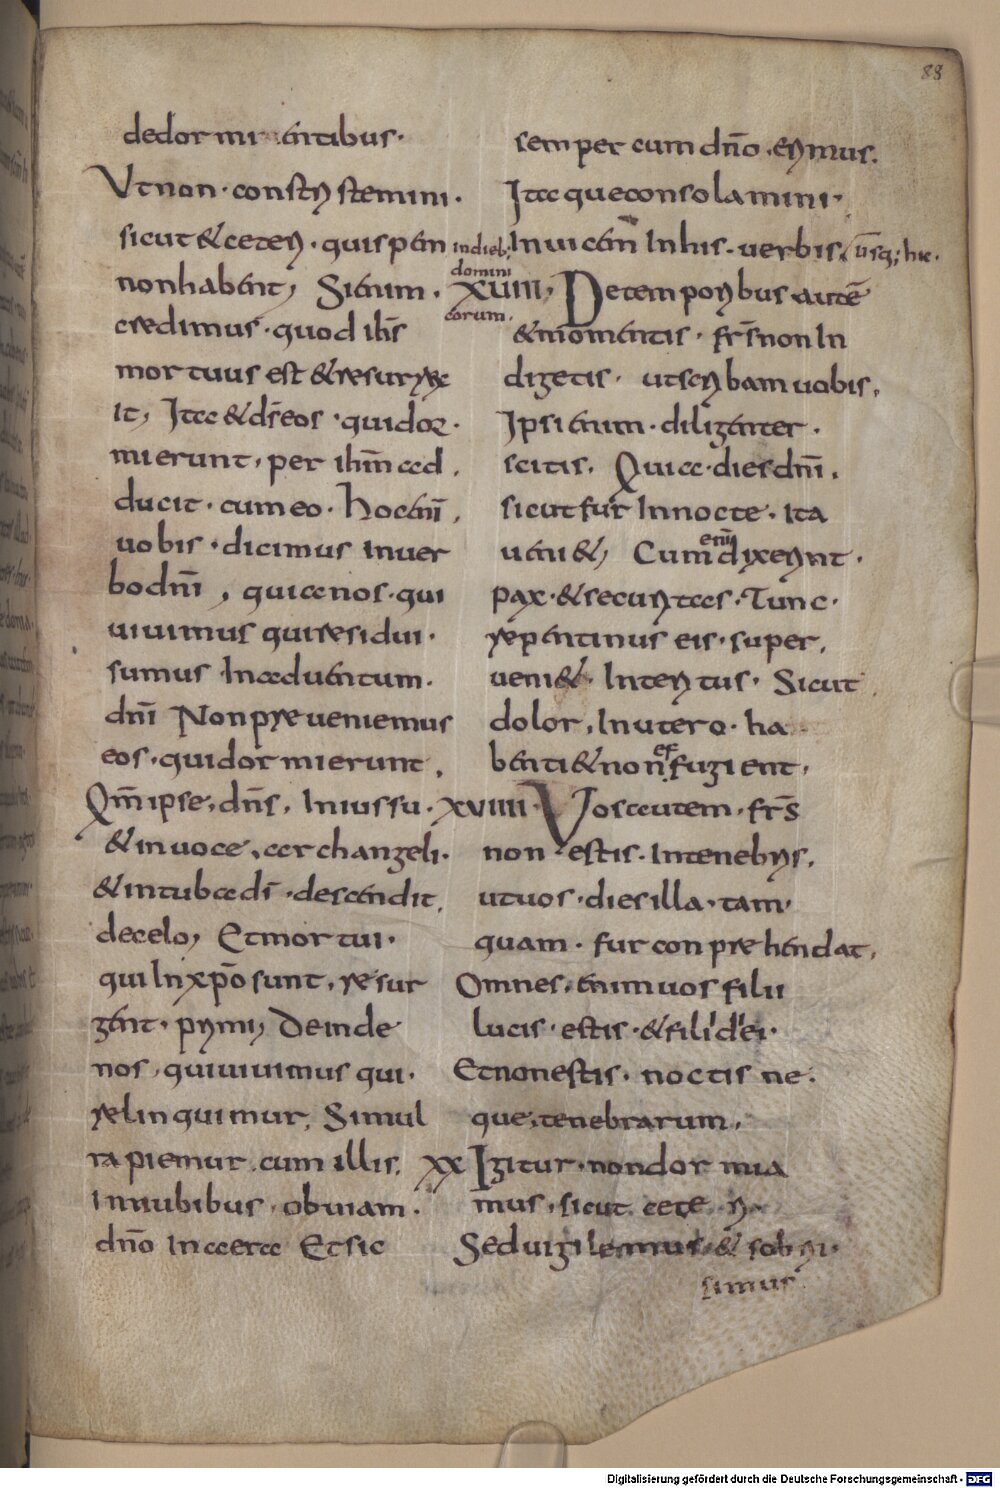 88
dedormientibus·
Ut non· constristemini·
sicut & ceteri· qui spem
non habent, Si enim·
credimus· quod ihs̄
mortuus est & resurrex
it, Ita & ds̄ eos· qui dor·
mierunt, per ihm̄ ad,
ducit· cum eo· hoc enī,
vobis· dicimus in ver
bo dn̄i, quia nos· qui
vivimus qui residui·
sumus in adventum·
dn̄i Non preveniemus
eos· qui dormierunt,
Qm̄ ipse, dn̄s, In iussu·
& in voce, archangeli·
& in tuba dī· descendit,
de celo, Et mortui·
qui In xp̄o sunt, resur
gent· primi, Deinde
nos, qui vivimus qui·
relinquimur, Simul
rapiemur, cum illis,
in nubibus, obviam·
dn̄o in aera Et sic
semper cum dn̄o, erimus.
Itaque consolamini·
in dieb;
domini
eorum·
Invicem In his· verbis, usq; hic·
XVIII, De temporibus autē
& momentis· frs̄ non In
digetis· ut scribam vobis,
Ipsi enim· diligenter·
scitis, Quia· dies dn̄i,
sicut fur In nocte· Ita
veni&, Cum enī dixerint·
pax· & securitas· Tunc·
repentinus eis· super,
veni& Interitus· Sicut
dolor, In utero· ha
benti & non effugient,
XVIIII· Vos autem· frs̄
non· estis· In tenebris,
ut vos· dies illa· tam·
quam· fur conprehendat,
Omnes, enim vos filii
lucis· estis· & fili dei·
Et non estis· noctis ne·
que, tenebrarum,
XX Igitur· non dormia
mus, sicut ceteri·
Sed vigilemus· & sobrii·
simus
Digitalisierung gefördert durch die Deutsche Forschungsgemeinschaft - DFG